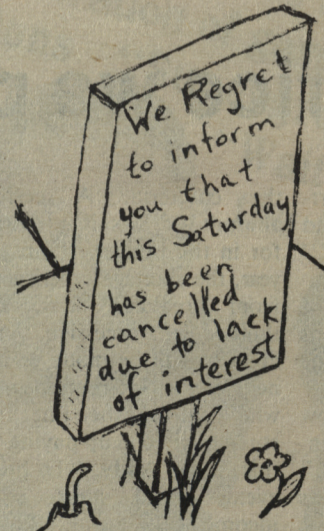 We Regret
to inform
you that
this Saturday
has been
cancelled
due to lack
of interest